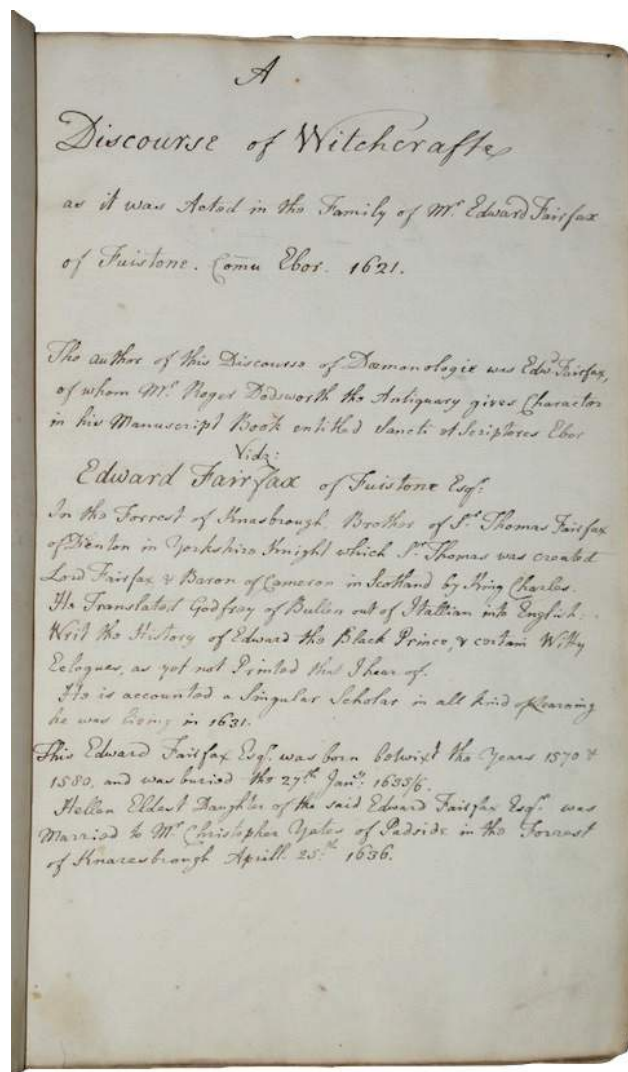 A
Discourse of Witchcrafte
as it was Acted in the Family of Mr Edward Fairfax
of Fuistone. Comu Ebor. 1621.
The author of this Discourse of Dæmonologie was Edwd Fairfax,
of whom Mr Roger Dodsworth the Antiquary gives Character
in his Manuscript Book entitled Sancti et Scriptores Ebor
Vidz:
Edward Fairfax of Fuistone Esqr:
In the Forrest of Knasbrough, Brother of Sr Thomas Fairfax
of Denton in Yorkshire Knight which Sr Thomas was created
Lord Fairfax & Baron of Cameron in Scotland by King Charles.
He Translated Godfrey of Bullen out of Itallian into English:
Writ the History of Edward the Black Prince, & certain Witty
Eclogues, as yet not Printed that I hear of.
He is accounted a Singular Scholar in all kind of Learning
he was living in 1631.
This Edward Fairfax Esqr. was born betwixt the Years 1570 &
1580, and was buried the 27th Janry: 1635/6.
Hellen Eldest Daughter of the said Edward Fairfax Esqr was
Married to Mr Christopher Yates of Padside in the Forrest
of Knaresbrough Aprill 25th 1636.